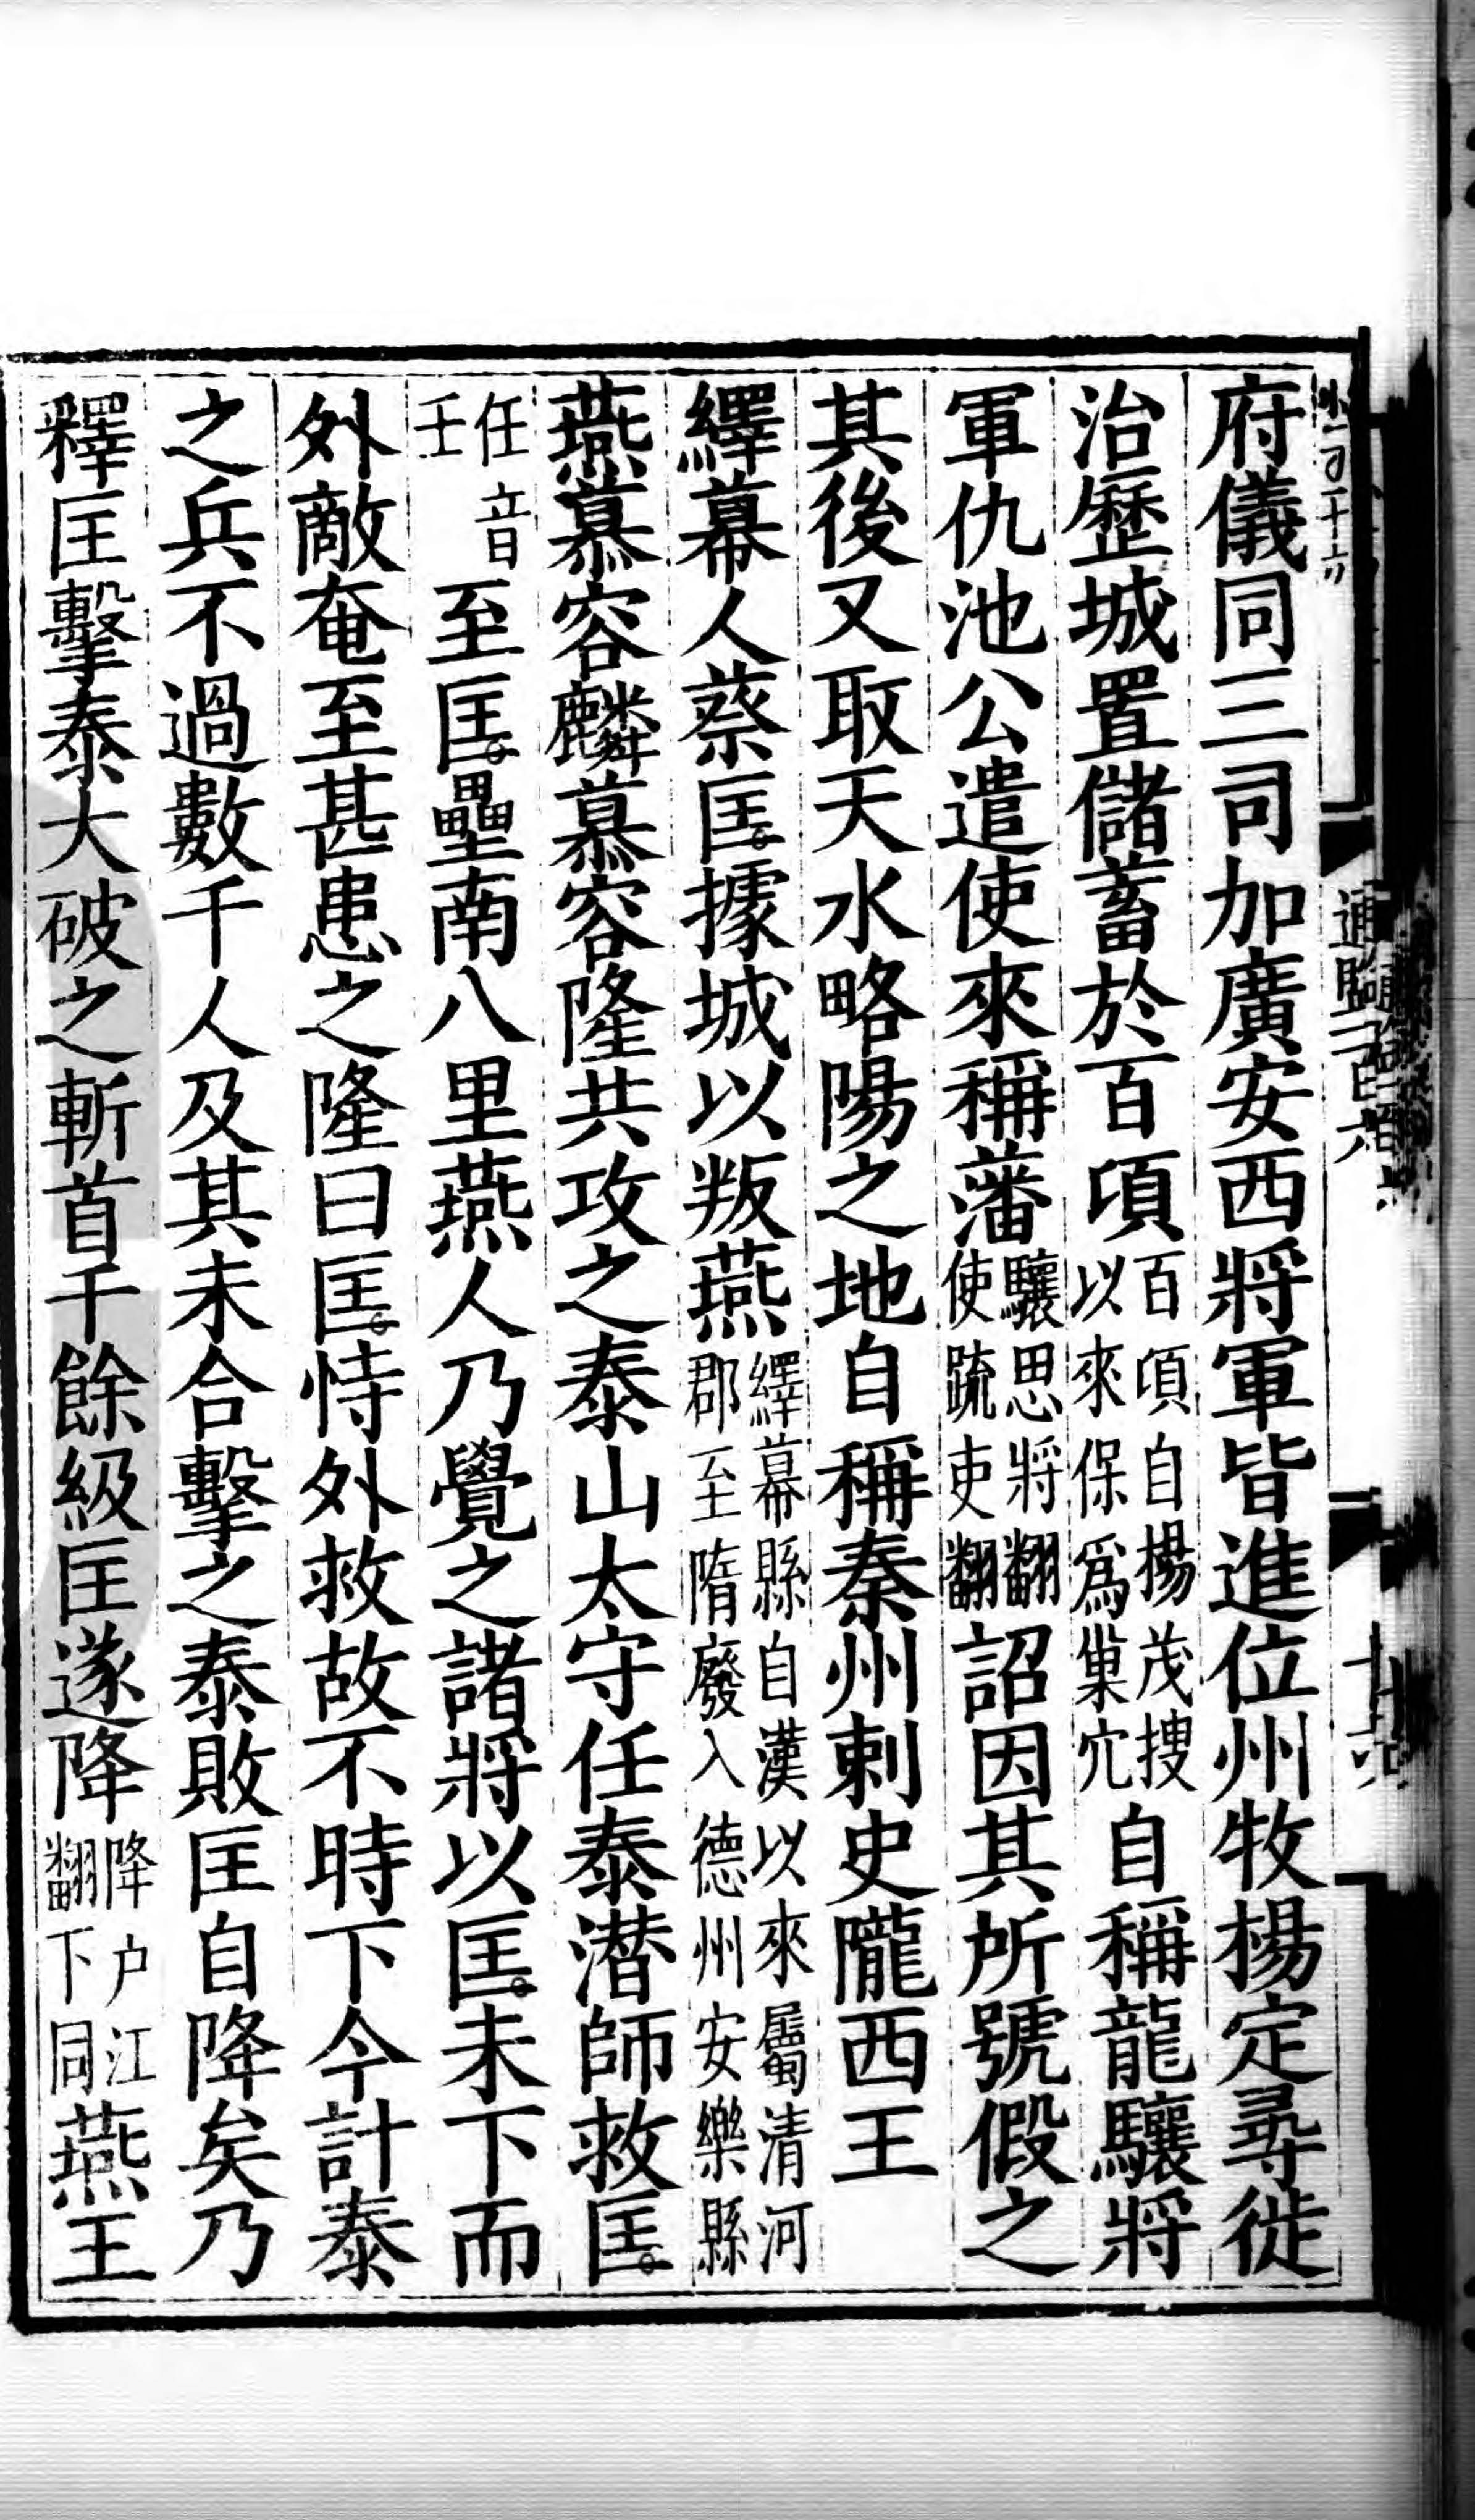 通鑑一百六
十六
府儀同三司加廣安西將軍皆進位州牧楊定尋徙
治歷城置儲蓄於百頃百頃自楊茂搜以來保爲巢穴自稱龍驤將
軍仇池公遣使來稱藩驤思將翻使疏吏翻詔因其所號假之
其後又取天水略陽之地自稱秦州刺史隴西王
繹幕人蔡匡據城以叛燕繹幕縣自漢以來屬清河郡至隋廢入德州安樂縣
燕慕容麟慕容隆共攻之泰山太守任泰潜師救匡
任音壬至匡壘南八里燕人乃覺之諸將以匡未下而
外敵奄至甚患之隆曰匡恃外救故不時下今計泰
之兵不過數千人及其未合擊之泰敗匡自降矣乃
釋匡擊泰大破之斬首千餘級匡遂降降户江翻下同燕王